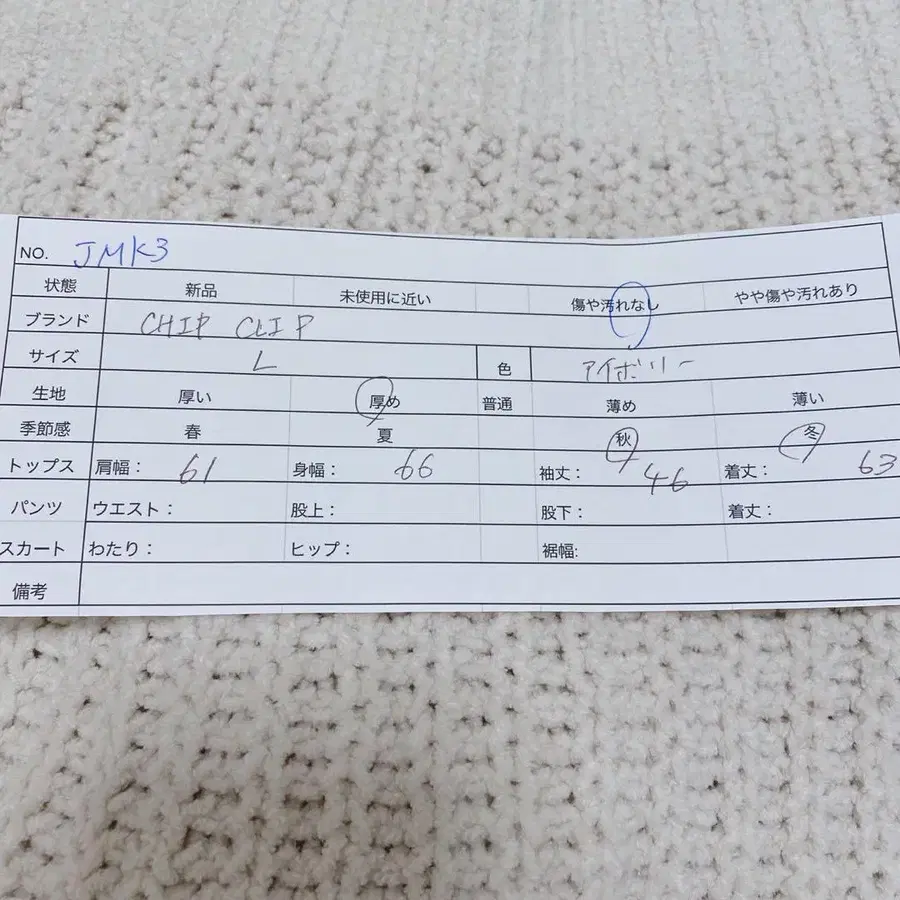 NO. JMK3
状態 新品 未使用に近い 傷や汚れなし やや傷や汚れあり
ブランド CHIP CLIP
サイズ L 色 アイボリー
生地 厚い 厚め 普通 薄め 薄い
季節感 春 夏 秋 冬
トップス 肩幅： 61 身幅： 66 袖丈： 46 着丈： 63
パンツ ウエスト： 股上： 股下： 着丈：
スカート わたり： ヒップ： 裾幅:
備考